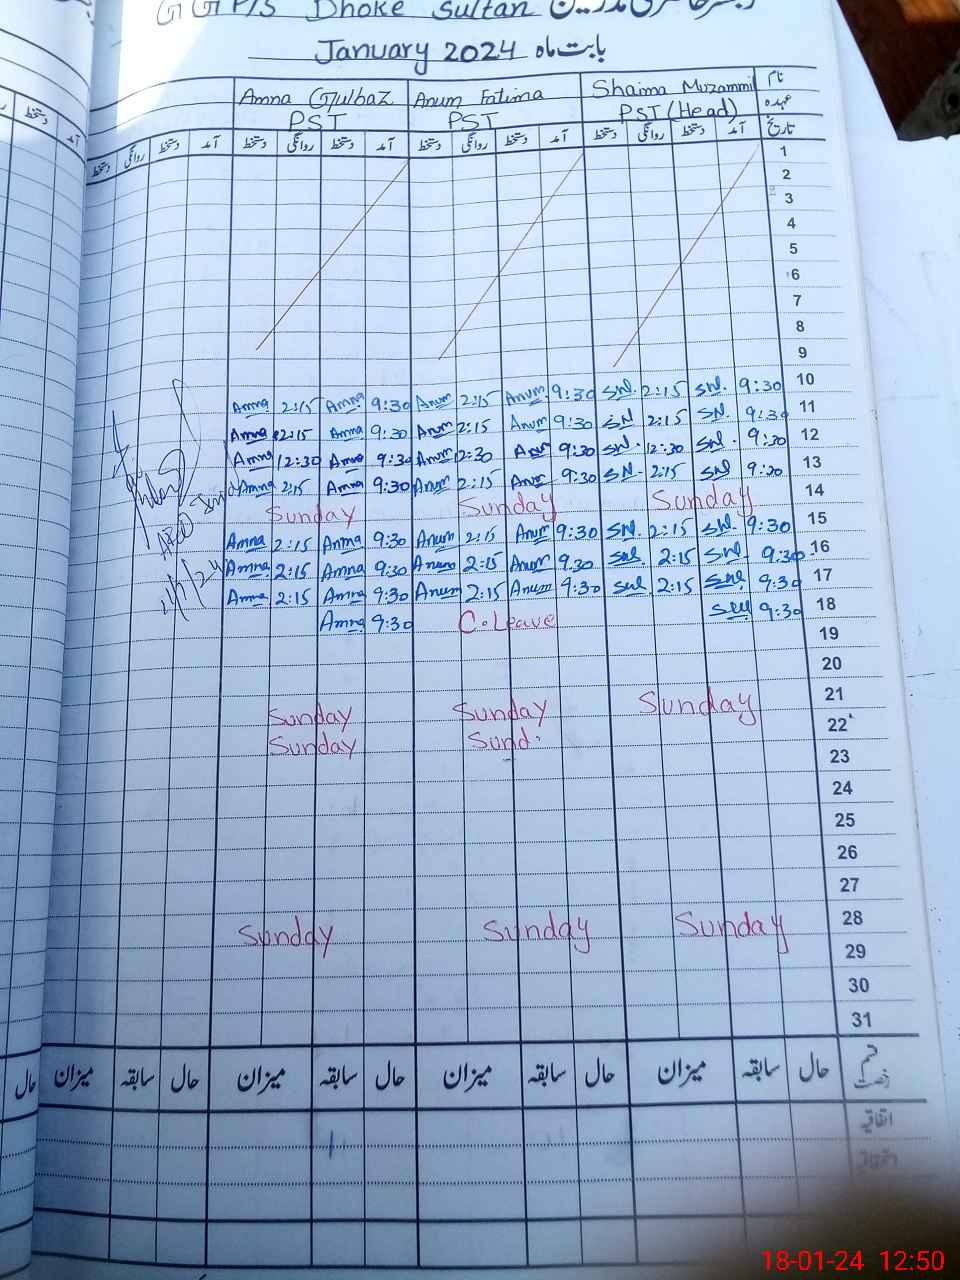 GGP/S Dhoke Sultan رجسٹر حاضری مدرسین
January 2024 بابت ماہ
Amna Gulbaz Anum Fatima Shaima Muzammil نام
PST PST PST (Head) عہدہ
دستخط روانگی دستخط آمد دستخط روانگی دستخط آمد دستخط روانگی دستخط آمد دستخط روانگی دستخط آمد تاریخ
1
2
3
4
5
6
7
8
9
Amna 2:15 Amna 9:30 Anum 2:15 Anum 9:30 2:15 9:30 10
Amna 2:15 Amna 9:30 Anum 2:15 Anum 9:30 2:15 9:30 11
Amna 12:30 Amna 9:30 Anum 2:30 Anum 9:30 12:30 9:30 12
Amna 2:15 Amna 9:30 Anum 2:15 Anum 9:30 2:15 9:30 13
Sunday Sunday Sunday 14
Amna 2:15 Amna 9:30 Anum 2:15 Anum 9:30 2:15 9:30 15
Amna 2:15 Amna 9:30 Anum 2:15 Anum 9:30 2:15 9:30 16
Amna 2:15 Amna 9:30 Anum 2:15 Anum 9:30 2:15 9:30 17
Amna 9:30 C.Leave 9:30 18
19
20
Sunday Sunday Sunday 21
Sunday Sund. 22
23
24
25
26
27
Sunday Sunday Sunday 28
29
30
31
حال میزان سابقہ حال میزان سابقہ حال میزان سابقہ حال میزان سابقہ حال قسم رخصت
اتفاقیہ
18-01-24 12:50